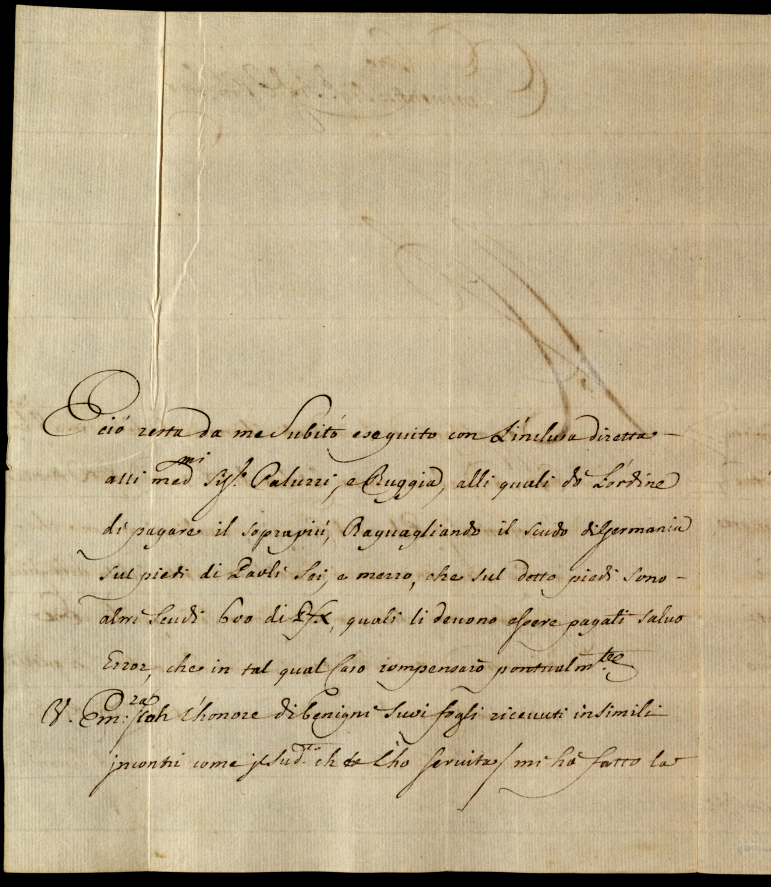 E ciò resta da me Subito eseguito con L'inclusa diretta
alli med.mi Sig.ri Paluzzi, e Ruggia, alli quali do L'ordine
di pagare il soprapiù, Raguagliando il scudo di Germania
sul piedi di Paoli Sei, e mezzo, che sul detto piedi sono
altri Scudi 600 di, quali li devono essere pagati salvo
Error, che in tal qual Caso compensarò pontualm.te
V. Em.za L'honore di benigni Suoi fogli ricevuti in simili
incontri come il Sud.tto ch L'ho servita / mi ha fatto la